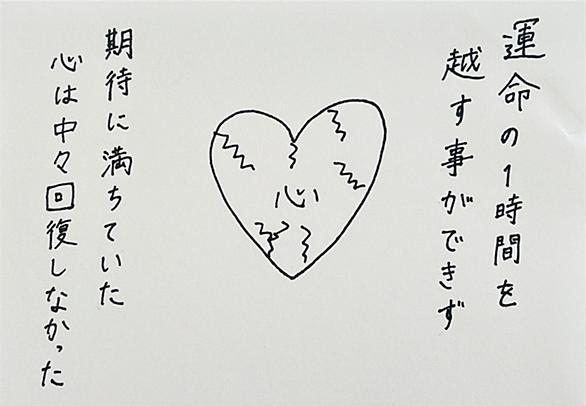 運命の1時間を
越す事ができず
心
期待に満ちていた
心は中々回復しなかった